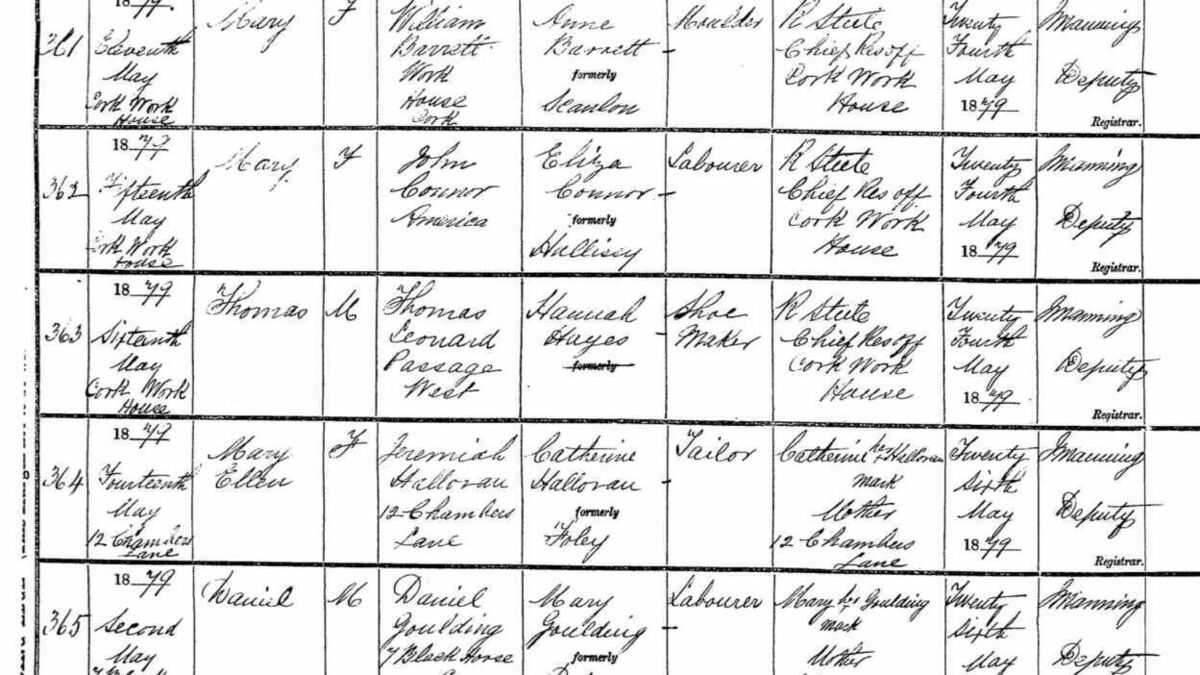 1879
361
Eleventh
May
Cork Work
House
Mary
F
William
Barrett
Work
House
Cork
Anne
Barrett
formerly
Scanlon
Moulder
R Steele
Chief Res off
Cork Work
House
Twenty
Fourth
May
1879
J Manning
Deputy
Registrar.
1879
362
Fifteenth
May
Cork Work
House
Mary
F
John
Connor
America
Eliza
Connor
formerly
Hallissy
Labourer
R Steele
Chief Res off
Cork Work
House
Twenty
Fourth
May
1879
J Manning
Deputy
Registrar.
1879
363
Sixteenth
May
Cork Work
House
Thomas
M
Thomas
Leonard
Passage
West
Hannah
Hayes
formerly
Shoe
Maker
R Steele
Chief Res off
Cork Work
House
Twenty
Fourth
May
1879
J Manning
Deputy
Registrar.
1879
364
Fourteenth
May
12 Chambers
Lane
Mary
Ellen
F
Jeremiah
Halloran
12 Chambers
Lane
Catherine
Halloran
formerly
Foley
Tailor
Catherine her x Halloran
mark
Mother
12 Chambers
Lane
Twenty
Sixth
May
1879
J Manning
Deputy
Registrar.
1879
365
Second
May
Daniel
M
Daniel
Goulding
7 Black Horse
Mary
Goulding
formerly
Labourer
Mary her x Goulding
mark
Mother
Twenty
Sixth
May
J Manning
Deputy